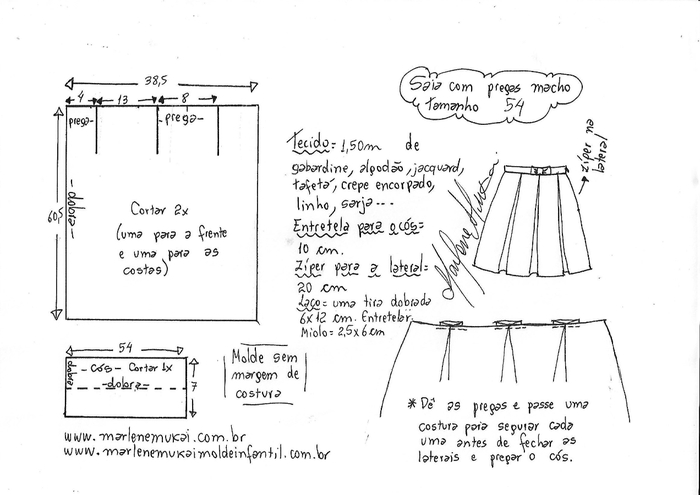 38,5
4 13 8
prega prega
60,5
dobra
Cortar 2x
(uma para a frente
e uma para as
costas)
54
- Cós - Cortar 1x
dobra
-dobra-
7
Molde sem
margem de
costura
www.marlenemukai.com.br
www.marlenemukaimoldeinfantil.com.br
Tecido= 1,50m de
gabardine, algodão, jacquard,
tafetá, crepe encorpado,
linho, sarja...
Entretela para o cós=
10 cm.
Zíper para a lateral=
20 cm
Laço= uma tira dobrada
6x12 cm. Entretelar.
Miolo= 2,5x6cm
Saia com pregas macho
tamanho 54
zíper na
lateral
Marlene Mukai
* Dê as pregas e passe uma
costura para segurar cada
uma antes de fechar as
laterais e pregar o cós.